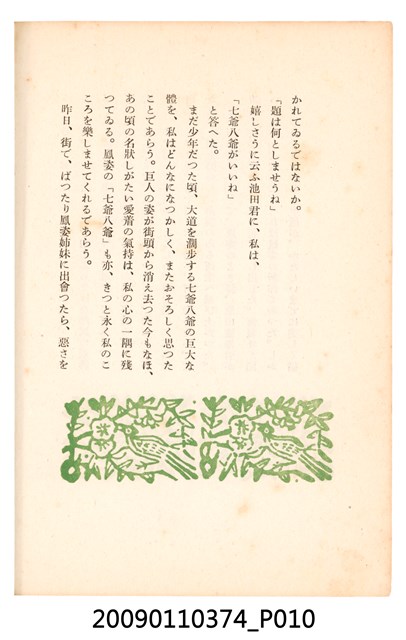 かれてゐるではないか。
「題は何としませうね」
嬉しさうに云ふ池田君に、私は、
「七爺八爺がいいね」
と答へた。
まだ少年だつた頃、大道を濶步する七爺八爺の巨大な
體を、私はどんなになつかしく、またおそろしく思つた
ことであらう。巨人の姿が街頭から消え去つた今もなほ、
あの頃の名狀しがたい愛着の氣持は、私の心の一隅に殘
つてゐる。鳳姿の「七爺八爺」も亦、きつと永く私のこ
ころを樂しませてくれるであらう。
昨日、街で、ばつたり鳳姿姉妹に出會つたら、惡さを
20090110374_P010